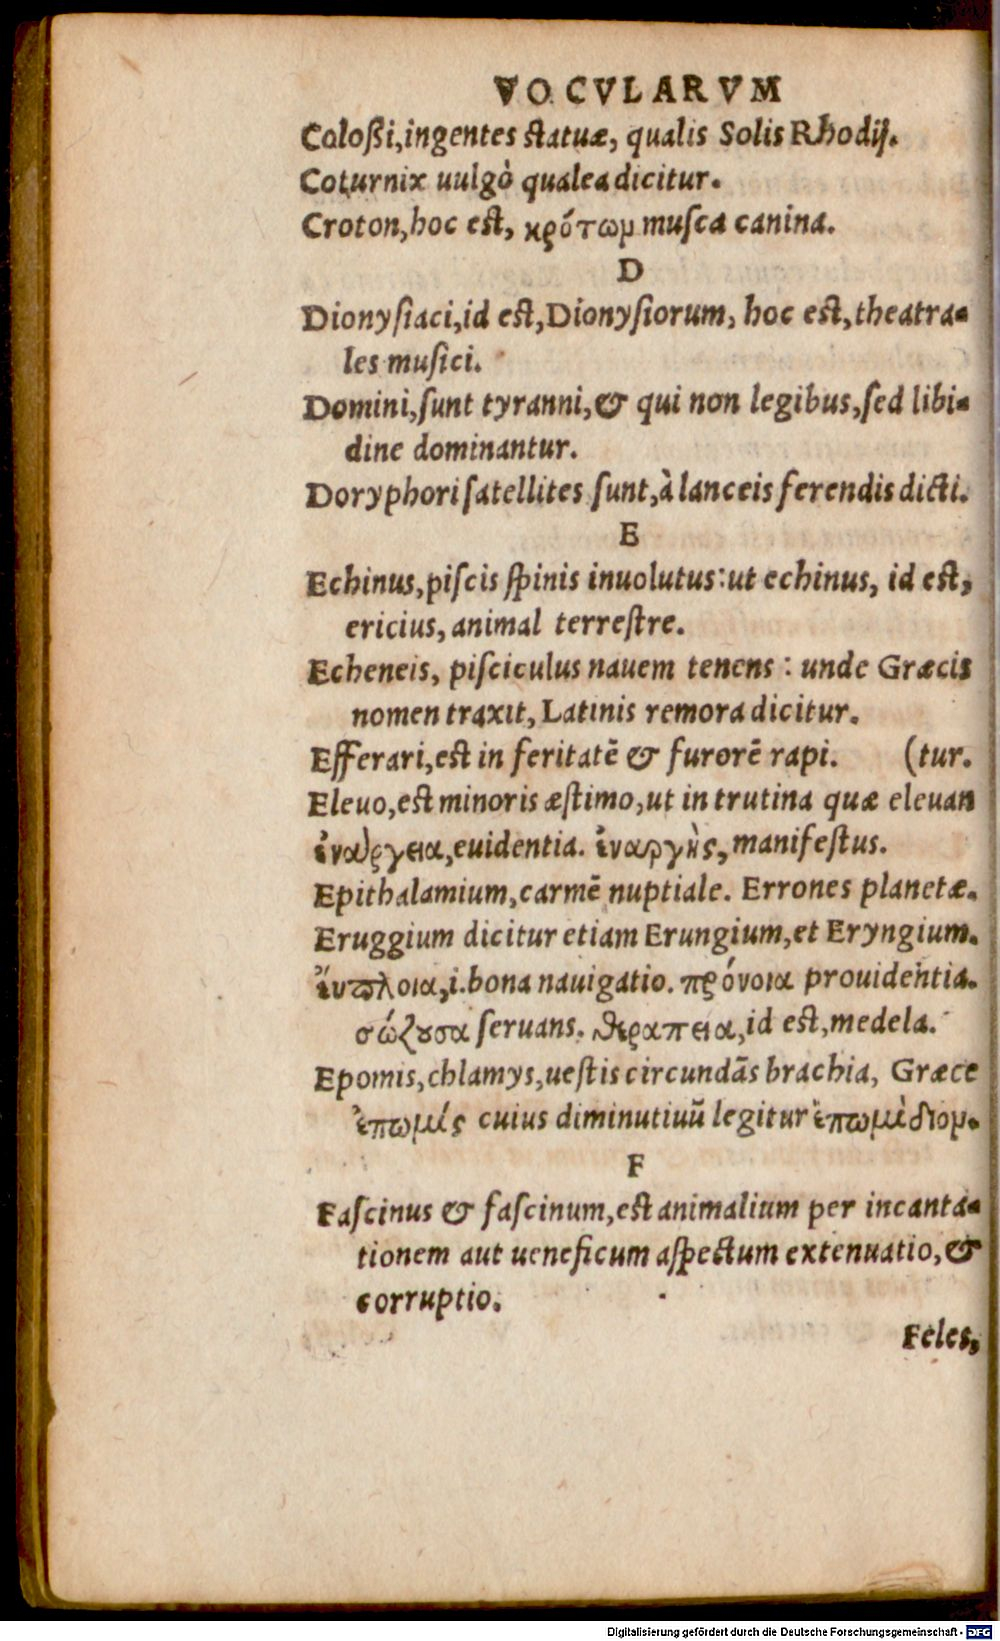 VOCVLARVM
Coloßi,ingentes statuæ, qualis Solis Rhodij.
Coturnix uulgò qualea dicitur.
Croton,hoc est, κρότωμ musca canina.
D
Dionysiaci,id est,Dionysiorum, hoc est,theatra-
les musici.
Domini,sunt tyranni,& qui non legibus,sed libi-
dine dominantur.
Doryphori satellites sunt,à lanceis ferendis dicti.
E
Echinus,piscis spinis inuolutus:ut echinus, id est,
ericius, animal terrestre.
Echeneis, pisciculus nauem tenens : unde Græcis
nomen traxit, Latinis remora dicitur.
Efferari,est in feritatē & furorē rapi. (tur.
Eleuo,est minoris æstimo,ut in trutina quæ eleuan
ἐνάργεια,euidentia. ἐναργὴς, manifestus.
Epithalamium,carmē nuptiale. Errones planetæ.
Eruggium dicitur etiam Erungium,et Eryngium.
ἔυπλοια,i.bona nauigatio. πρόνοια prouidentia.
σώζουσα seruans. θεραπεια,id est,medela.
Epomis,chlamys,uestis circundās brachia, Græce
ἐπωμίς cuius diminutiuū legitur ἐπωμίδιομ.
F
Fascinus & fascinum,est animalium per incanta-
tionem aut ueneficum aspectum extenuatio,&
corruptio.
Feles,
Digitalisierung gefördert durch die Deutsche Forschungsgemeinschaft - DFG